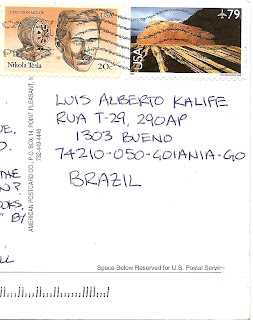 Nikola Tesla
20c
USA
79
AMERICAN POSTCARD CO., P.O. BOX 14, POINT PLEASANT, N
732-449-4446
LUIS ALBERTO KALIFE
RUA T-29, 290AP
1303 BUENO
74210-050-GOIANIA-GO
BRAZIL
THE
?
OOKS.
" BY
LL
Space Below Reserved for U.S. Postal Servi